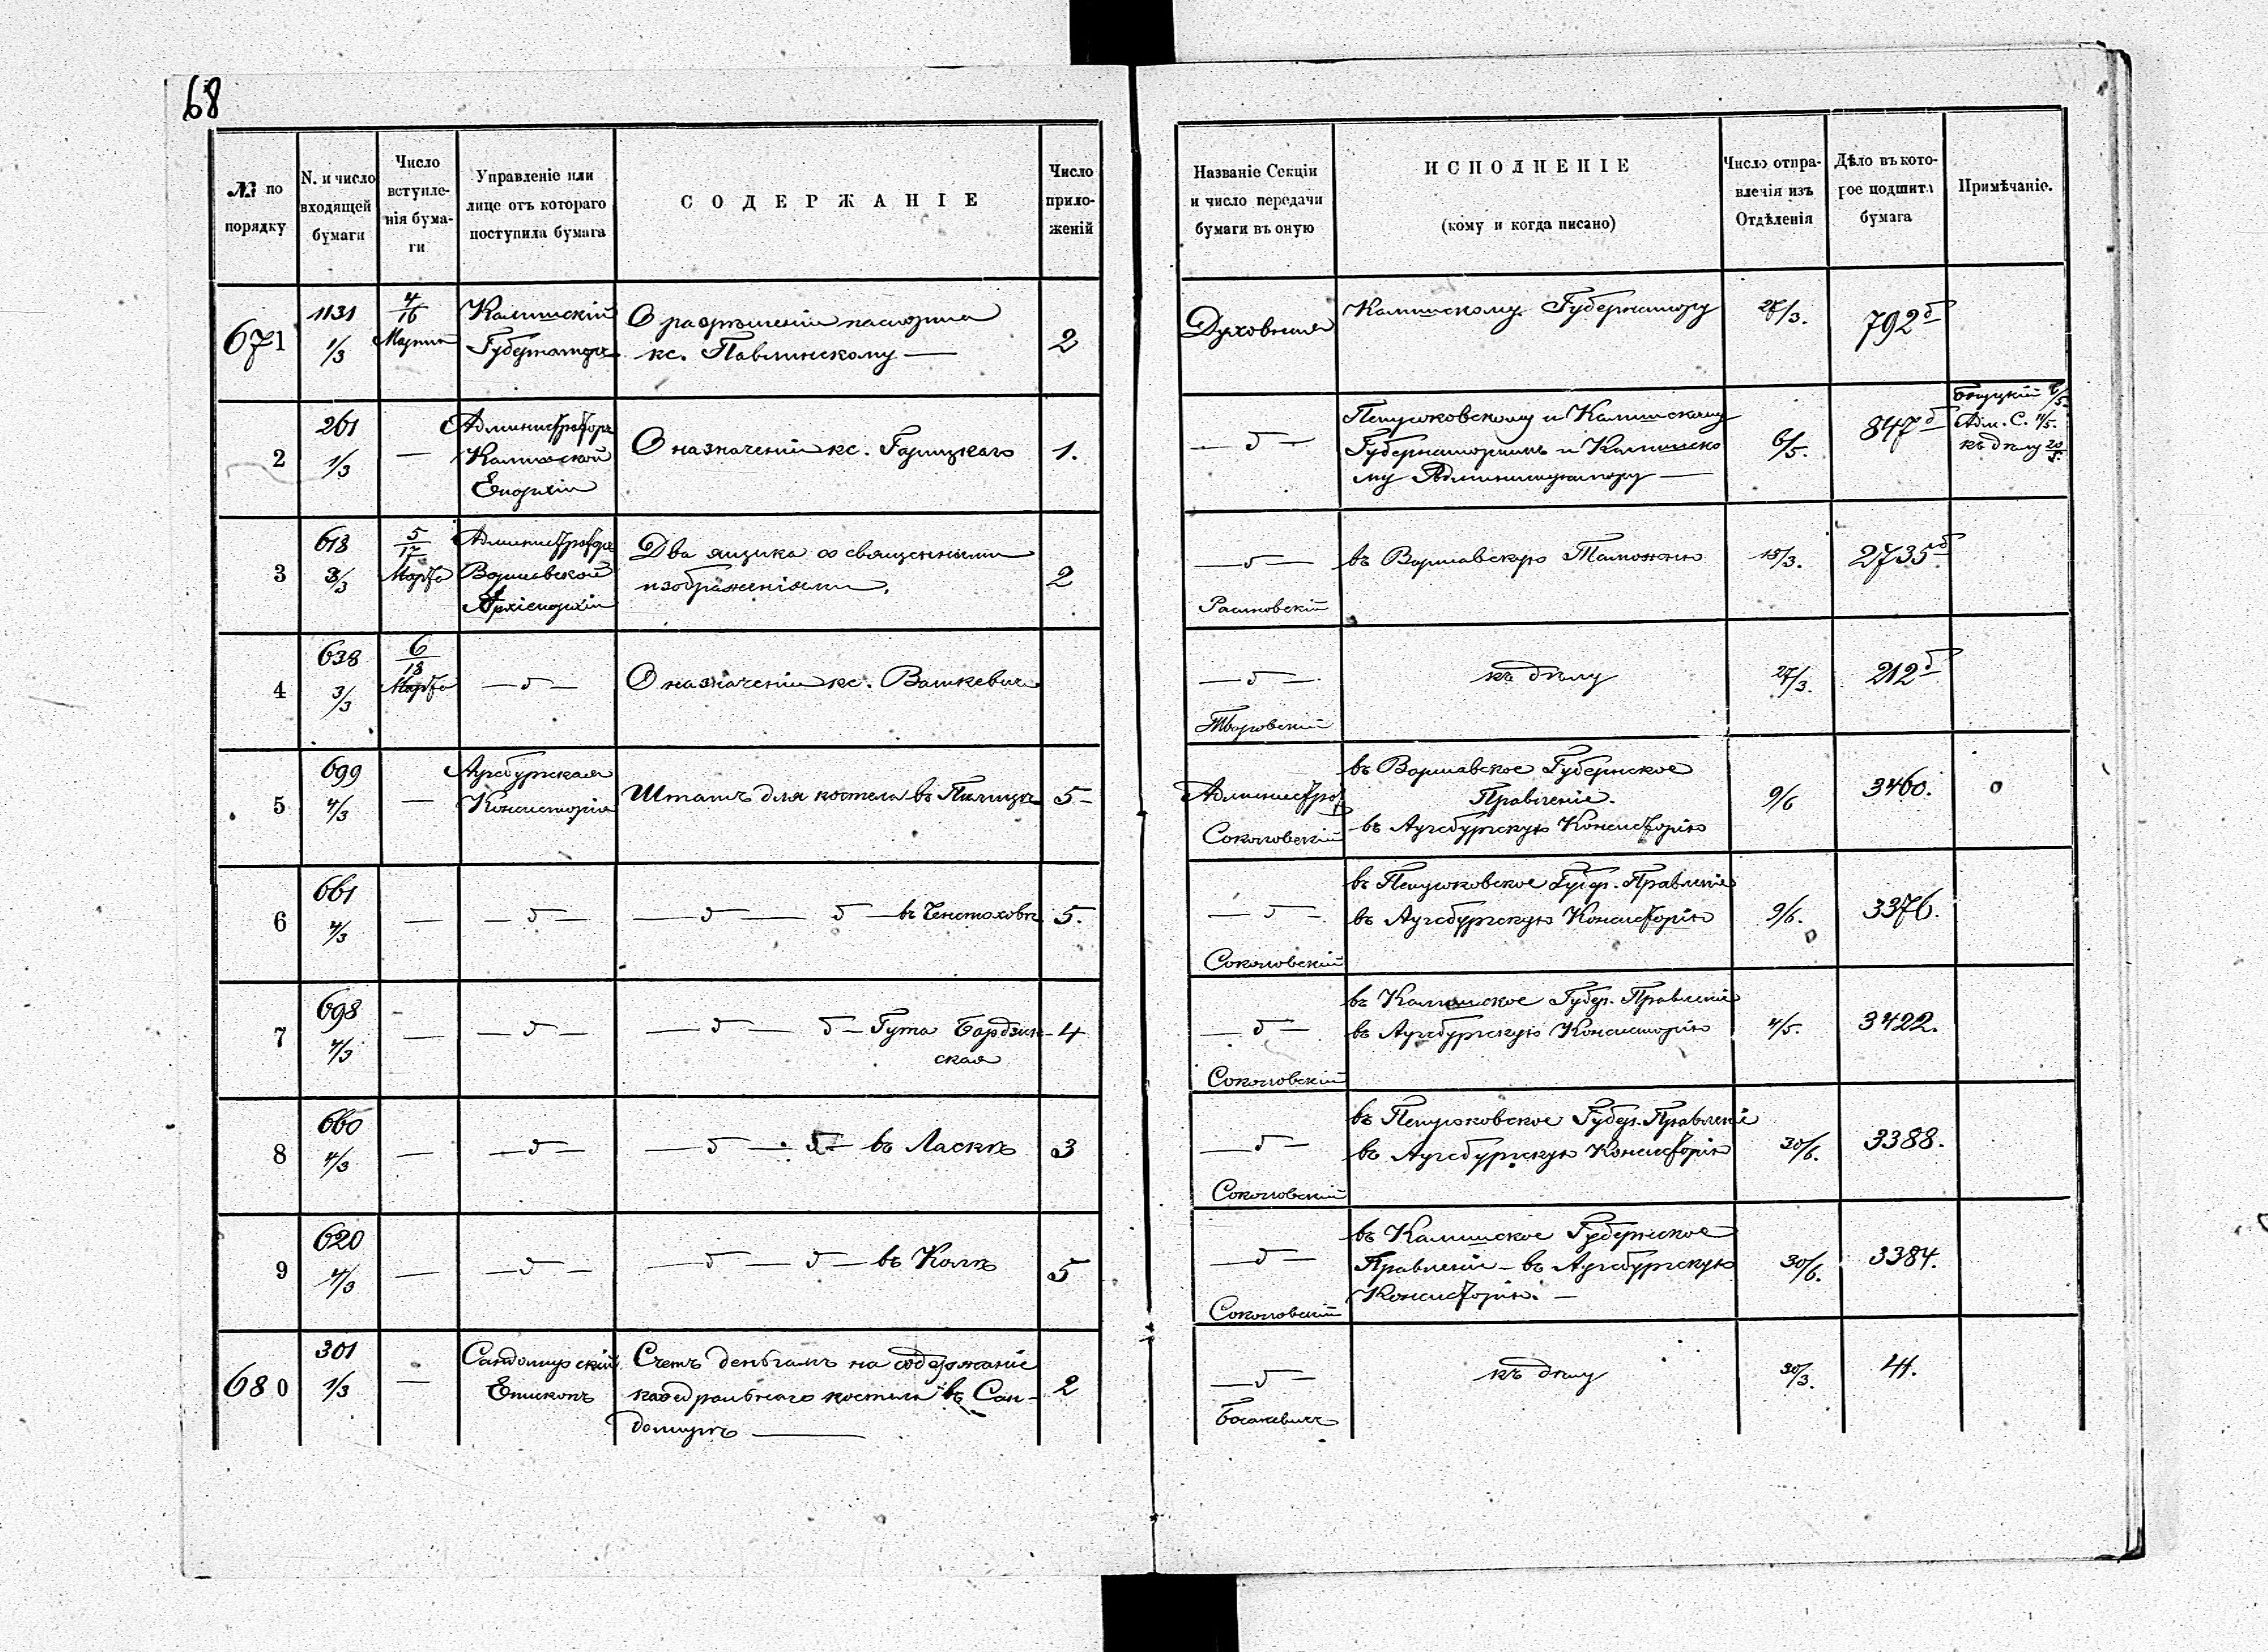 68
№ по порядку
N. и число входящей бумаги
Число вступле-нія бума-ги
Управленіе или лице отъ котораго поступила бумага
СОДЕРЖАНІЕ
Число прило-женій
Названіе Секціи и число передачи бумаги въ оную
ИСПОЛНЕНІЕ
(кому и когда писано)
Число отпра-вленія изъ Отдѣленія
Дѣло въ кото-рое подшита бумага
Примѣчаніе.
671
1131
1/3
4/16
Марта
Калишскій
Губернаторъ
О разрѣшеніи паспорта
кс. Павлинскому —
2
Духовная
Калишскому Губернатору
27/3.
792 б
2
261
1/3
—
Администраторъ
Калишской
Епархіи
О назначеніи кс. Гарицкаго
1.
— б —
Петроковскому и Калишскому
Губернаторамъ и Калишско
му Администратору —
6/5.
847 б
Адм. С. 11/5.
къ дѣлу 20/5.
3
618
3/3
5/17
Марта
Администраторъ
Варшавской
Архіепархіи
Два ящика со священными
изображеніями.
2
— б —
Расиновскій
въ Варшавскую Таможню
15/3.
2735 б
4
638
3/3
6/18
Марта
— б —
О назначеніи кс. Вашкевича
— б —
Творовскій
къ дѣлу
27/3.
212 б
5
699
4/3
—
Аугсбургская
Консисторія
Штатъ для костела въ Пилицѣ
5-
Администра
Соколовскій
въ Варшавское Губернское
Правленіе.
въ Аугсбургскую Консисторію
9/6
3460.
6
661
4/3
—
— б —
— б — б — въ Ченстоховѣ
5.
— б —
Соколовскій
въ Петроковское Губер. Правленіе
въ Аугсбургскую Консисторію
9/6.
3376.
7
698
4/3
—
— б —
— б — б — Гута Бардзин-
ская
4
— б —
Соколовскій
въ Калишское Губер. Правленіе
въ Аугсбургскую Консисторію
4/5.
3422.
8
660
4/3
—
— б —
— б — б — въ Ласкѣ
3
— б —
Соколовскій
въ Петроковское Губер. Правленіе
въ Аугсбургскую Консисторію
30/6.
3388.
9
620
4/3
—
— б —
— б — б — въ Колѣ
5
— б —
Соколовскій
въ Калишское Губернское
Правленіе - въ Аугсбургскую
Консисторію. —
30/6.
3384.
680
301
1/3
—
Сандомирскій
Епископъ
Счетъ деньгамъ на содержаніе
каѳедральнаго костела въ Сан-
домирѣ —
2
— б —
Босакевичъ
къ дѣлу
30/3.
41.